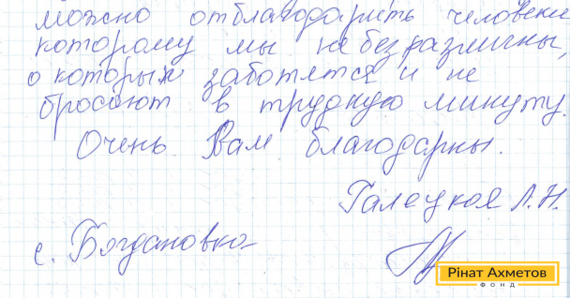 можно отблагодарить человека
которому мы не безразличны,
о которых заботятся и не
бросают в трудную минуту.
Очень Вам благодарны.
Галецкая Л.Н.
с. Богдановка
Рінат Ахметов
ФОНД